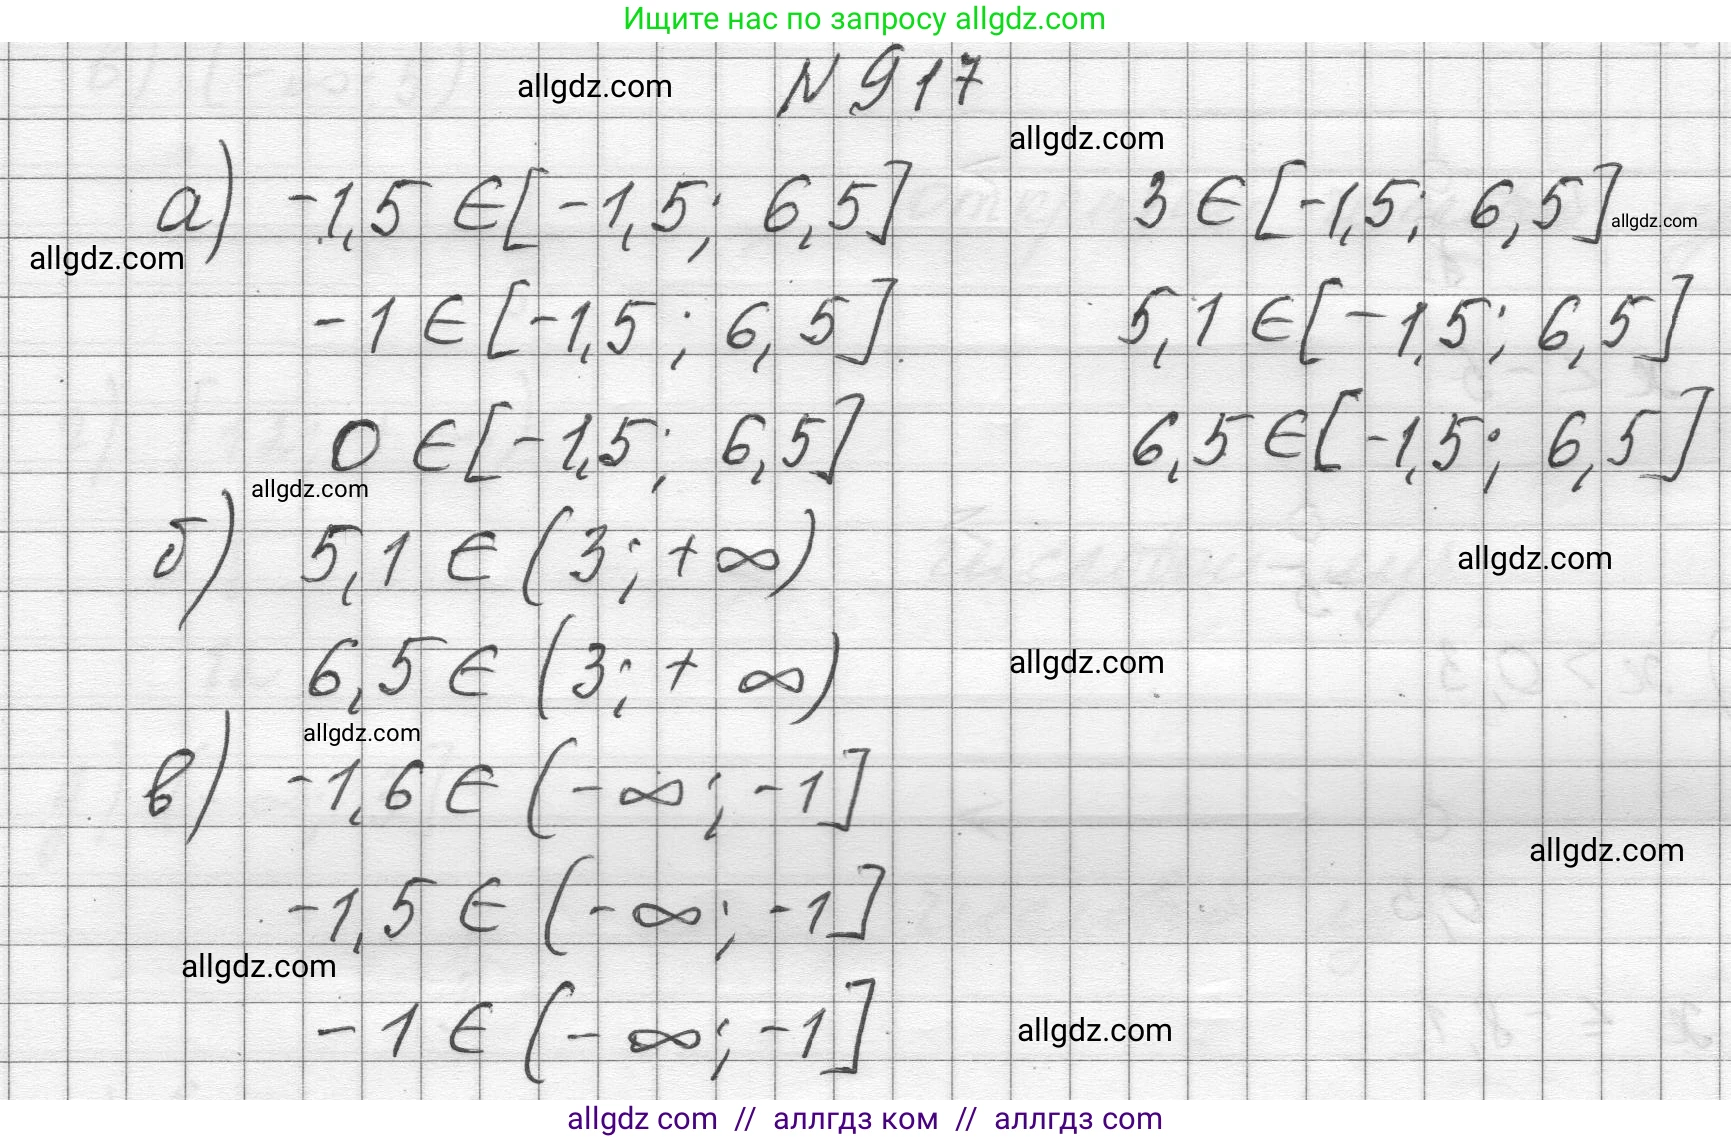 Ищите нас по запросу allgdz.com
allgdz.com
N 917
allgdz.com
а) -1,5 ∈ [-1,5; 6,5] 3 ∈ [-1,5; 6,5]
allgdz.com
allgdz.com
-1 ∈ [-1,5; 6,5] 5,1 ∈ [-1,5; 6,5]
0 ∈ [-1,5; 6,5] 6,5 ∈ [-1,5; 6,5]
allgdz.com
б) 5,1 ∈ (3; +∞)
allgdz.com
6,5 ∈ (3; +∞)
allgdz.com
allgdz.com
в) -1,6 ∈ (-∞; -1]
allgdz.com
-1,5 ∈ (-∞; -1]
allgdz.com
-1 ∈ (-∞; -1]
allgdz.com
allgdz com // аллгдз ком // аллгдз com